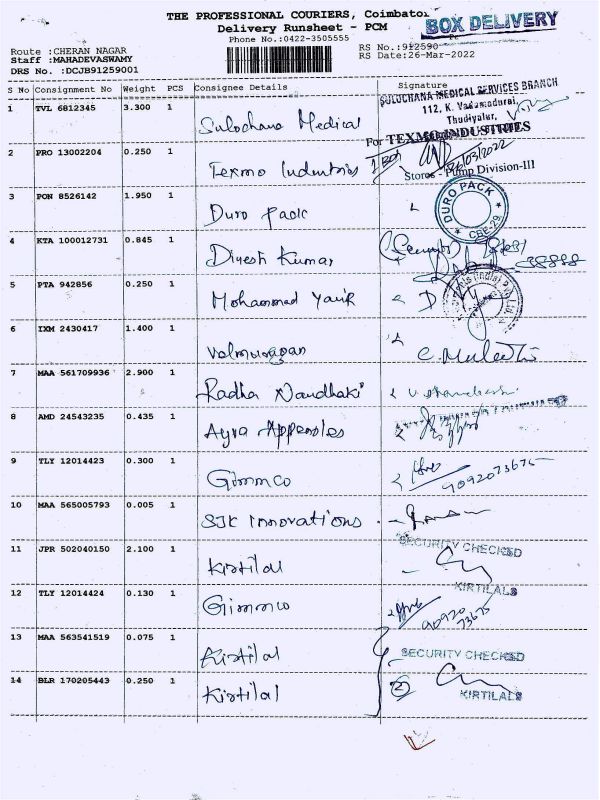 THE PROFESSIONAL COURIERS, Coimbator
BOX DELIVERY
Delivery Runsheet - PCM
Phone No.:0422-3505555
Route :CHERAN NAGAR
Staff :MAHADEVASWAMY
DRS No. :DCJB91259001
RS No.:912590
RS Date:26-Mar-2022
S No Consignment No Weight PCS Consignee Details Signature
1 TVL 6812345 3.300 1 Sulochana Medical
SULOCHANA MEDICAL SERVICES BRANCH
112, K. Vadamadurai,
Thudiyalur,
For TEXMO INDUSTRIES
2 PRO 13002204 0.250 1 Texmo Industries
26/03/2022
Stores - Pump Division-III
3 PON 8526142 1.950 1 Duro pack
DURO PACK
CBE-29
4 KTA 100012731 0.845 1 Dinesh Kumar
5 PTA 942856 0.250 1 Mohammad
6 IXM 2430417 1.400 1 Valmurugan
7 MAA 561709936 2.900 1 Radha
8 AMD 24543235 0.435 1 Ayra
9 TLY 12014423 0.300 1 Gimmco
9092073675
10 MAA 565005793 0.005 1 SJK Innovations
11 JPR 502040150 2.100 1 Kirtilal
SECURITY CHECKED
KIRTILALS
12 TLY 12014424 0.130 1 Gimmco
90920
73675
13 MAA 563541519 0.075 1 Kirtilal
SECURITY CHECKED
14 BLR 170205443 0.250 1 Kirtilal
2
KIRTILALS